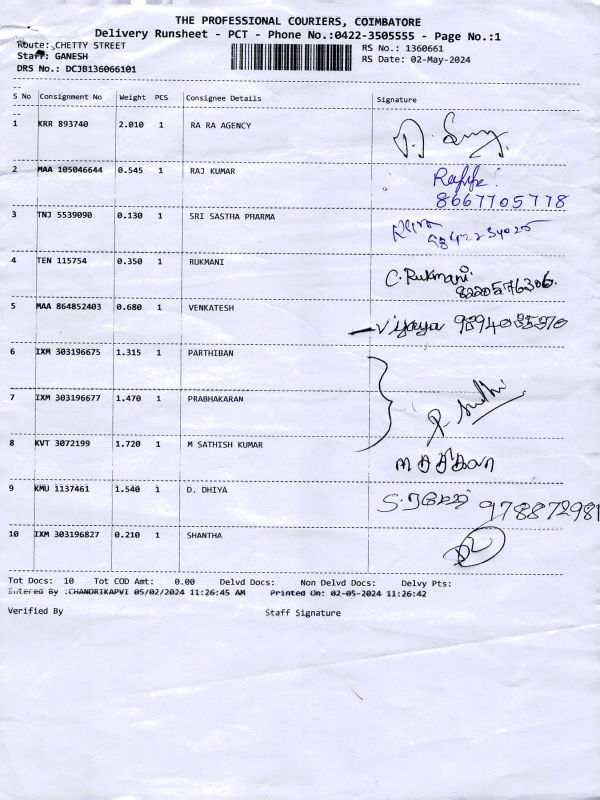 THE PROFESSIONAL COURIERS, COIMBATORE
Delivery Runsheet - PCT - Phone No.:0422-3505555 - Page No.:1
Route: CHETTY STREET RS No.: 1360661
Staff: GANESH RS Date: 02-May-2024
DRS No.: DCJB136066101
S No Consignment No Weight PCS Consignee Details Signature
1 KRR 893740 2.010 1 RA RA AGENCY
2 MAA 105046644 0.545 1 RAJ KUMAR
8667705778
3 TNJ 5539090 0.130 1 SRI SASTHA PHARMA
4 TEN 115754 0.350 1 RUKMANI C. Rukmani.
8220576306
5 MAA 864852403 0.680 1 VENKATESH
Vijaya
6 IXM 303196675 1.315 1 PARTHIBAN
7 IXM 303196677 1.470 1 PRABHAKARAN
8 KVT 3072199 1.720 1 M SATHISH KUMAR
9 KMU 1137461 1.540 1 D. DHIYA 9788872981
10 IXM 303196827 0.210 1 SHANTHA
Tot Docs: 10 Tot COD Amt: 0.00 Delvd Docs: Non Delvd Docs: Delvy Pts:
Entered By :CHANDRIKAPVI 05/02/2024 11:26:45 AM Printed On: 02-05-2024 11:26:42
Verified By Staff Signature